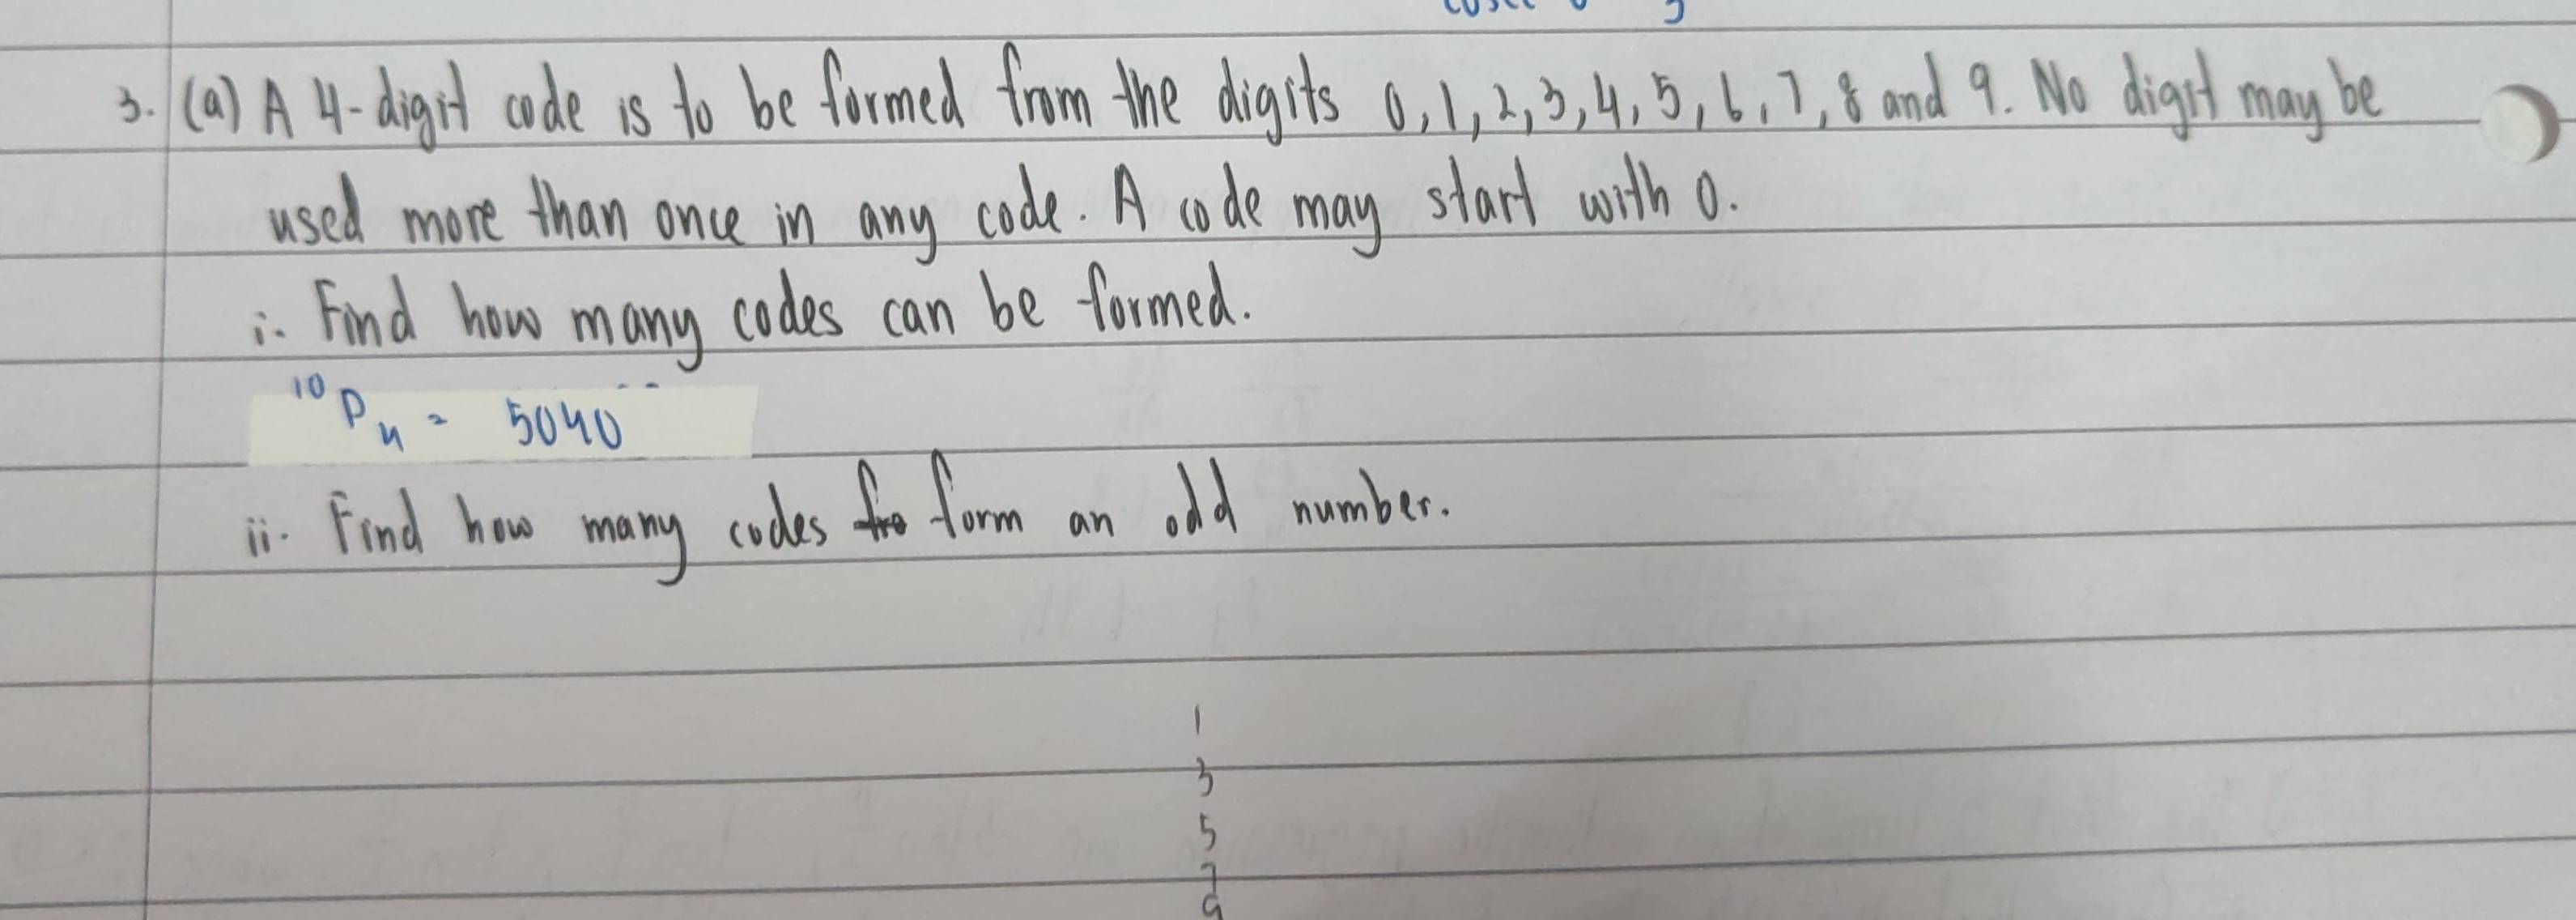 3. (a) A 4-digit code is to be formed from the digits 0, 1, 2, 3, 4, 5, 6, 7, 8 and 9. No digit may be
used more than once in any code. A code may start with 0.
i. Find how many codes can be formed.
¹⁰P₄ = 5040
ii. Find how many codes form an odd number.
1
3
5
7
9